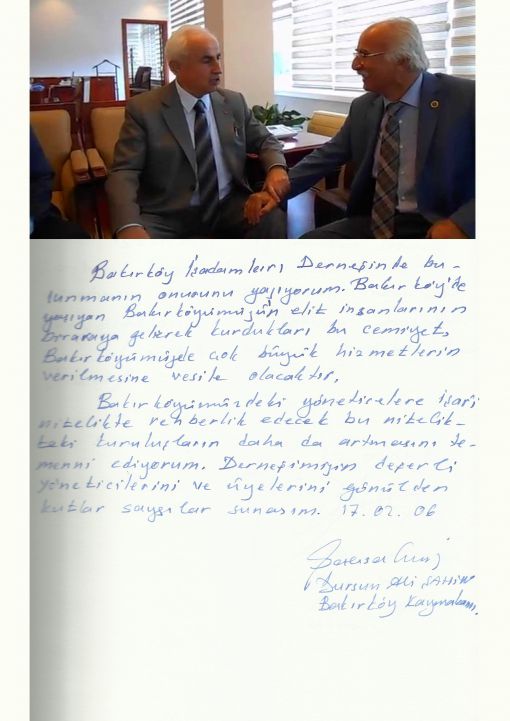 Bakırköy İşadamları Derneğinde bu-
lunmanın onurunu yaşıyorum. Bakırköy'de
yaşıyan Bakırköyümüzün elit insanlarının
biraraya gelerek kurdukları bu cemiyet,
Bakırköyümüzde çok büyük hizmetlerin
verilmesine vesile olacaktır.
Bakırköyümüzdeki yöneticilere isari
nitelikte rehberlik edecek bu nitelik-
teki kuruluşların daha da artmasını te-
menni ediyorum. Derneğimizin değerli
yöneticilerini ve üyelerini gönülden
kutlar saygılar sunarım. 17.02.06
Dursun Ali ŞAHİN
Bakırköy Kaymakamı.